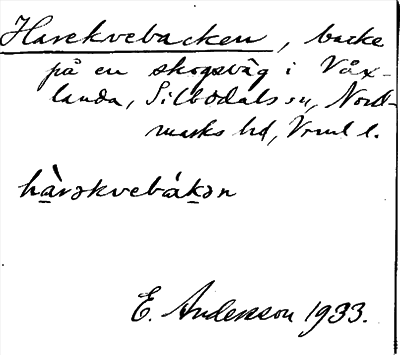 Harekvebacken, backe
på en skogsväg i Våx-
landa, Silbodals sn, Nord-
marks hd, Vrml l.
hàrəkvebákən
E. Andersson 1933.